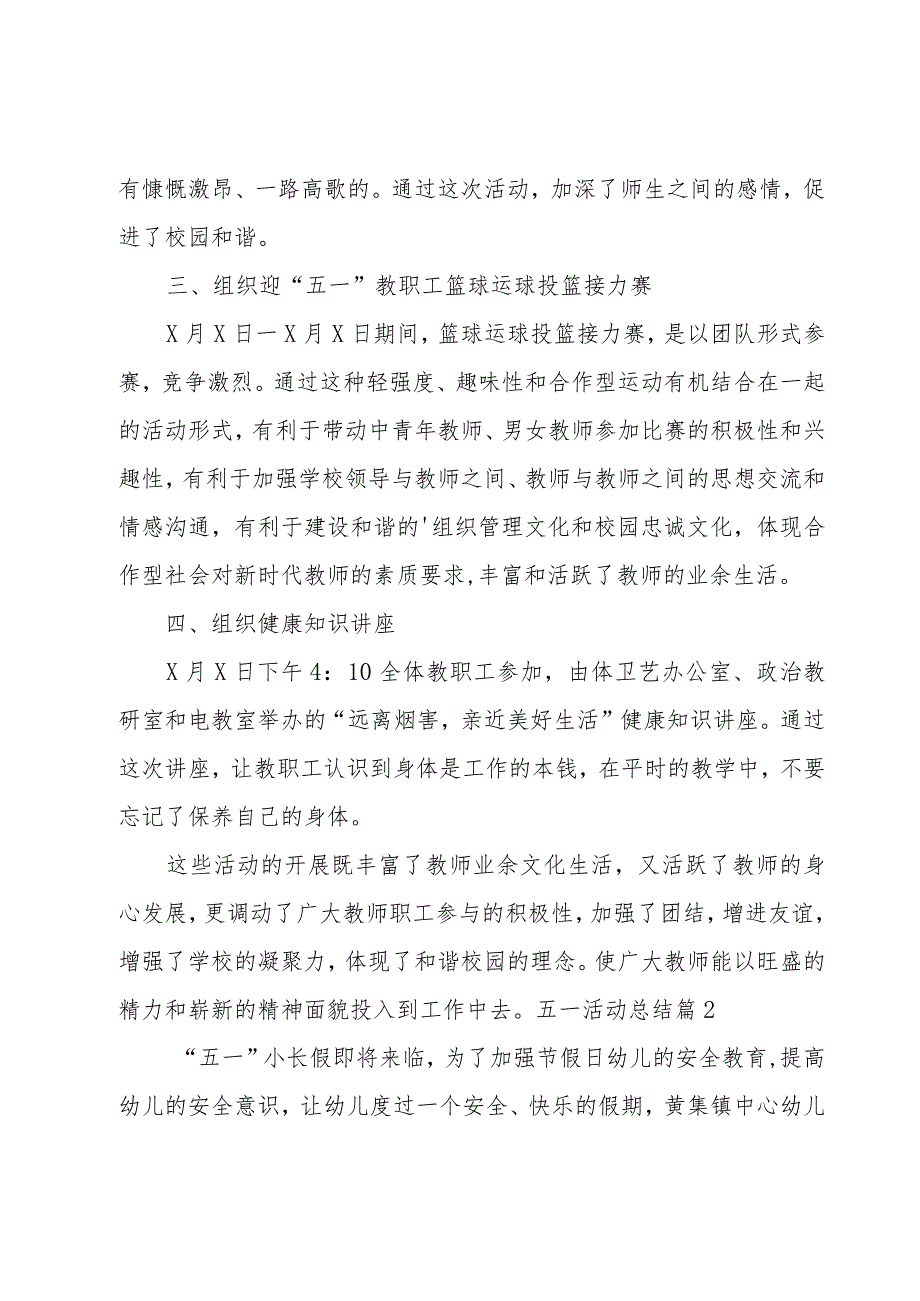 有慷慨激昂、一路高歌的。通过这次活动，加深了师生之间的感情，促
进了校园和谐。
三、组织迎“五一”教职工篮球运球投篮接力赛
X月X日一X月X日期间，篮球运球投篮接力赛，是以团队形式参
赛，竞争激烈。通过这种轻强度、趣味性和合作型运动有机结合在一起
的活动形式，有利于带动中青年教师、男女教师参加比赛的积极性和兴
趣性，有利于加强学校领导与教师之间、教师与教师之间的思想交流和
情感沟通，有利于建设和谐的'组织管理文化和校园忠诚文化，体现合
作型社会对新时代教师的素质要求,丰富和活跃了教师的业余生活。
四、组织健康知识讲座
X月X日下午4：10全体教职工参加，由体卫艺办公室、政治教
研室和电教室举办的“远离烟害，亲近美好生活”健康知识讲座。通过
这次讲座，让教职工认识到身体是工作的本钱，在平时的教学中，不要
忘记了保养自己的身体。
这些活动的开展既丰富了教师业余文化生活，又活跃了教师的身
心发展，更调动了广大教师职工参与的积极性，加强了团结，增进友谊，
增强了学校的凝聚力，体现了和谐校园的理念。使广大教师能以旺盛的
精力和崭新的精神面貌投入到工作中去。五一活动总结篇2
“五一”小长假即将来临，为了加强节假日幼儿的安全教育,提高
幼儿的安全意识，让幼儿度过一个安全、快乐的假期，黄集镇中心幼儿